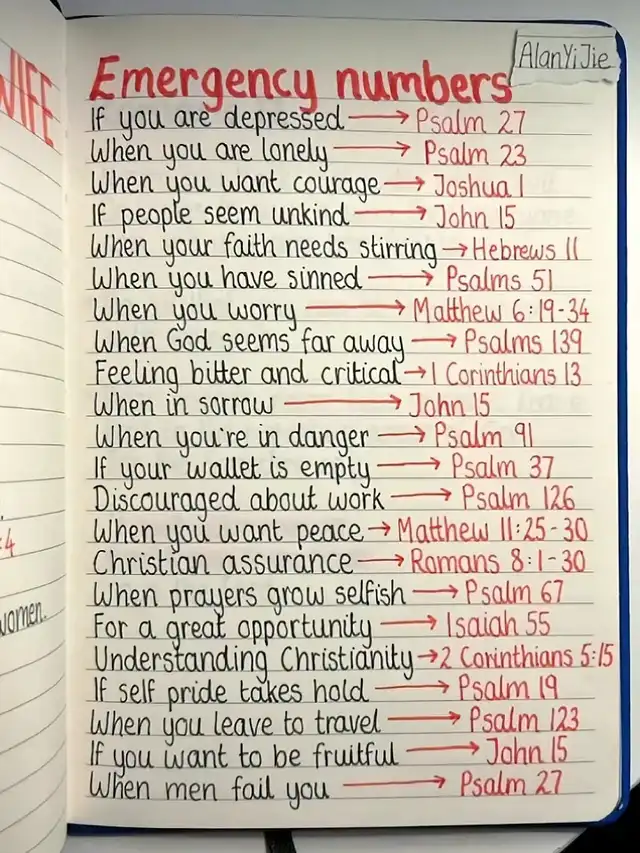 WIFE
:4
women.
AlanYiJie
Emergency numbers
If you are depressed → Psalm 27
When you are lonely → Psalm 23
When you want courage → Joshua 1
If people seem unkind → John 15
When your faith needs stirring → Hebrews 11
When you have sinned → Psalms 51
When you worry → Matthew 6:19-34
When God seems far away → Psalms 139
Feeling bitter and critical → 1 Corinthians 13
When in sorrow → John 15
When you're in danger → Psalm 91
If your wallet is empty → Psalm 37
Discouraged about work → Psalm 126
When you want peace → Matthew 11:25-30
Christian assurance → Romans 8:1-30
When prayers grow selfish → Psalm 67
For a great opportunity → Isaiah 55
Understanding Christianity → 2 Corinthians 5:15
If self pride takes hold → Psalm 19
When you leave to travel → Psalm 123
If you want to be fruitful → John 15
When men fail you → Psalm 27